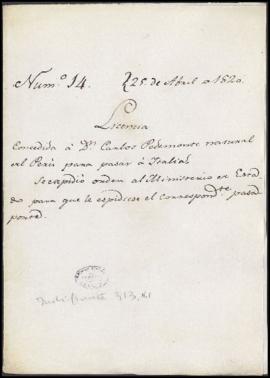 Num.º 14. 25 de Abril de 1820.
Licencia
Concedida á Dn. Carlos Pedemonte natural
del Perú para pasar á Italia.
Se expidió orden al Ministerio de Esta-
do para que le espidiese el correspond.te pasa
porte.
313,